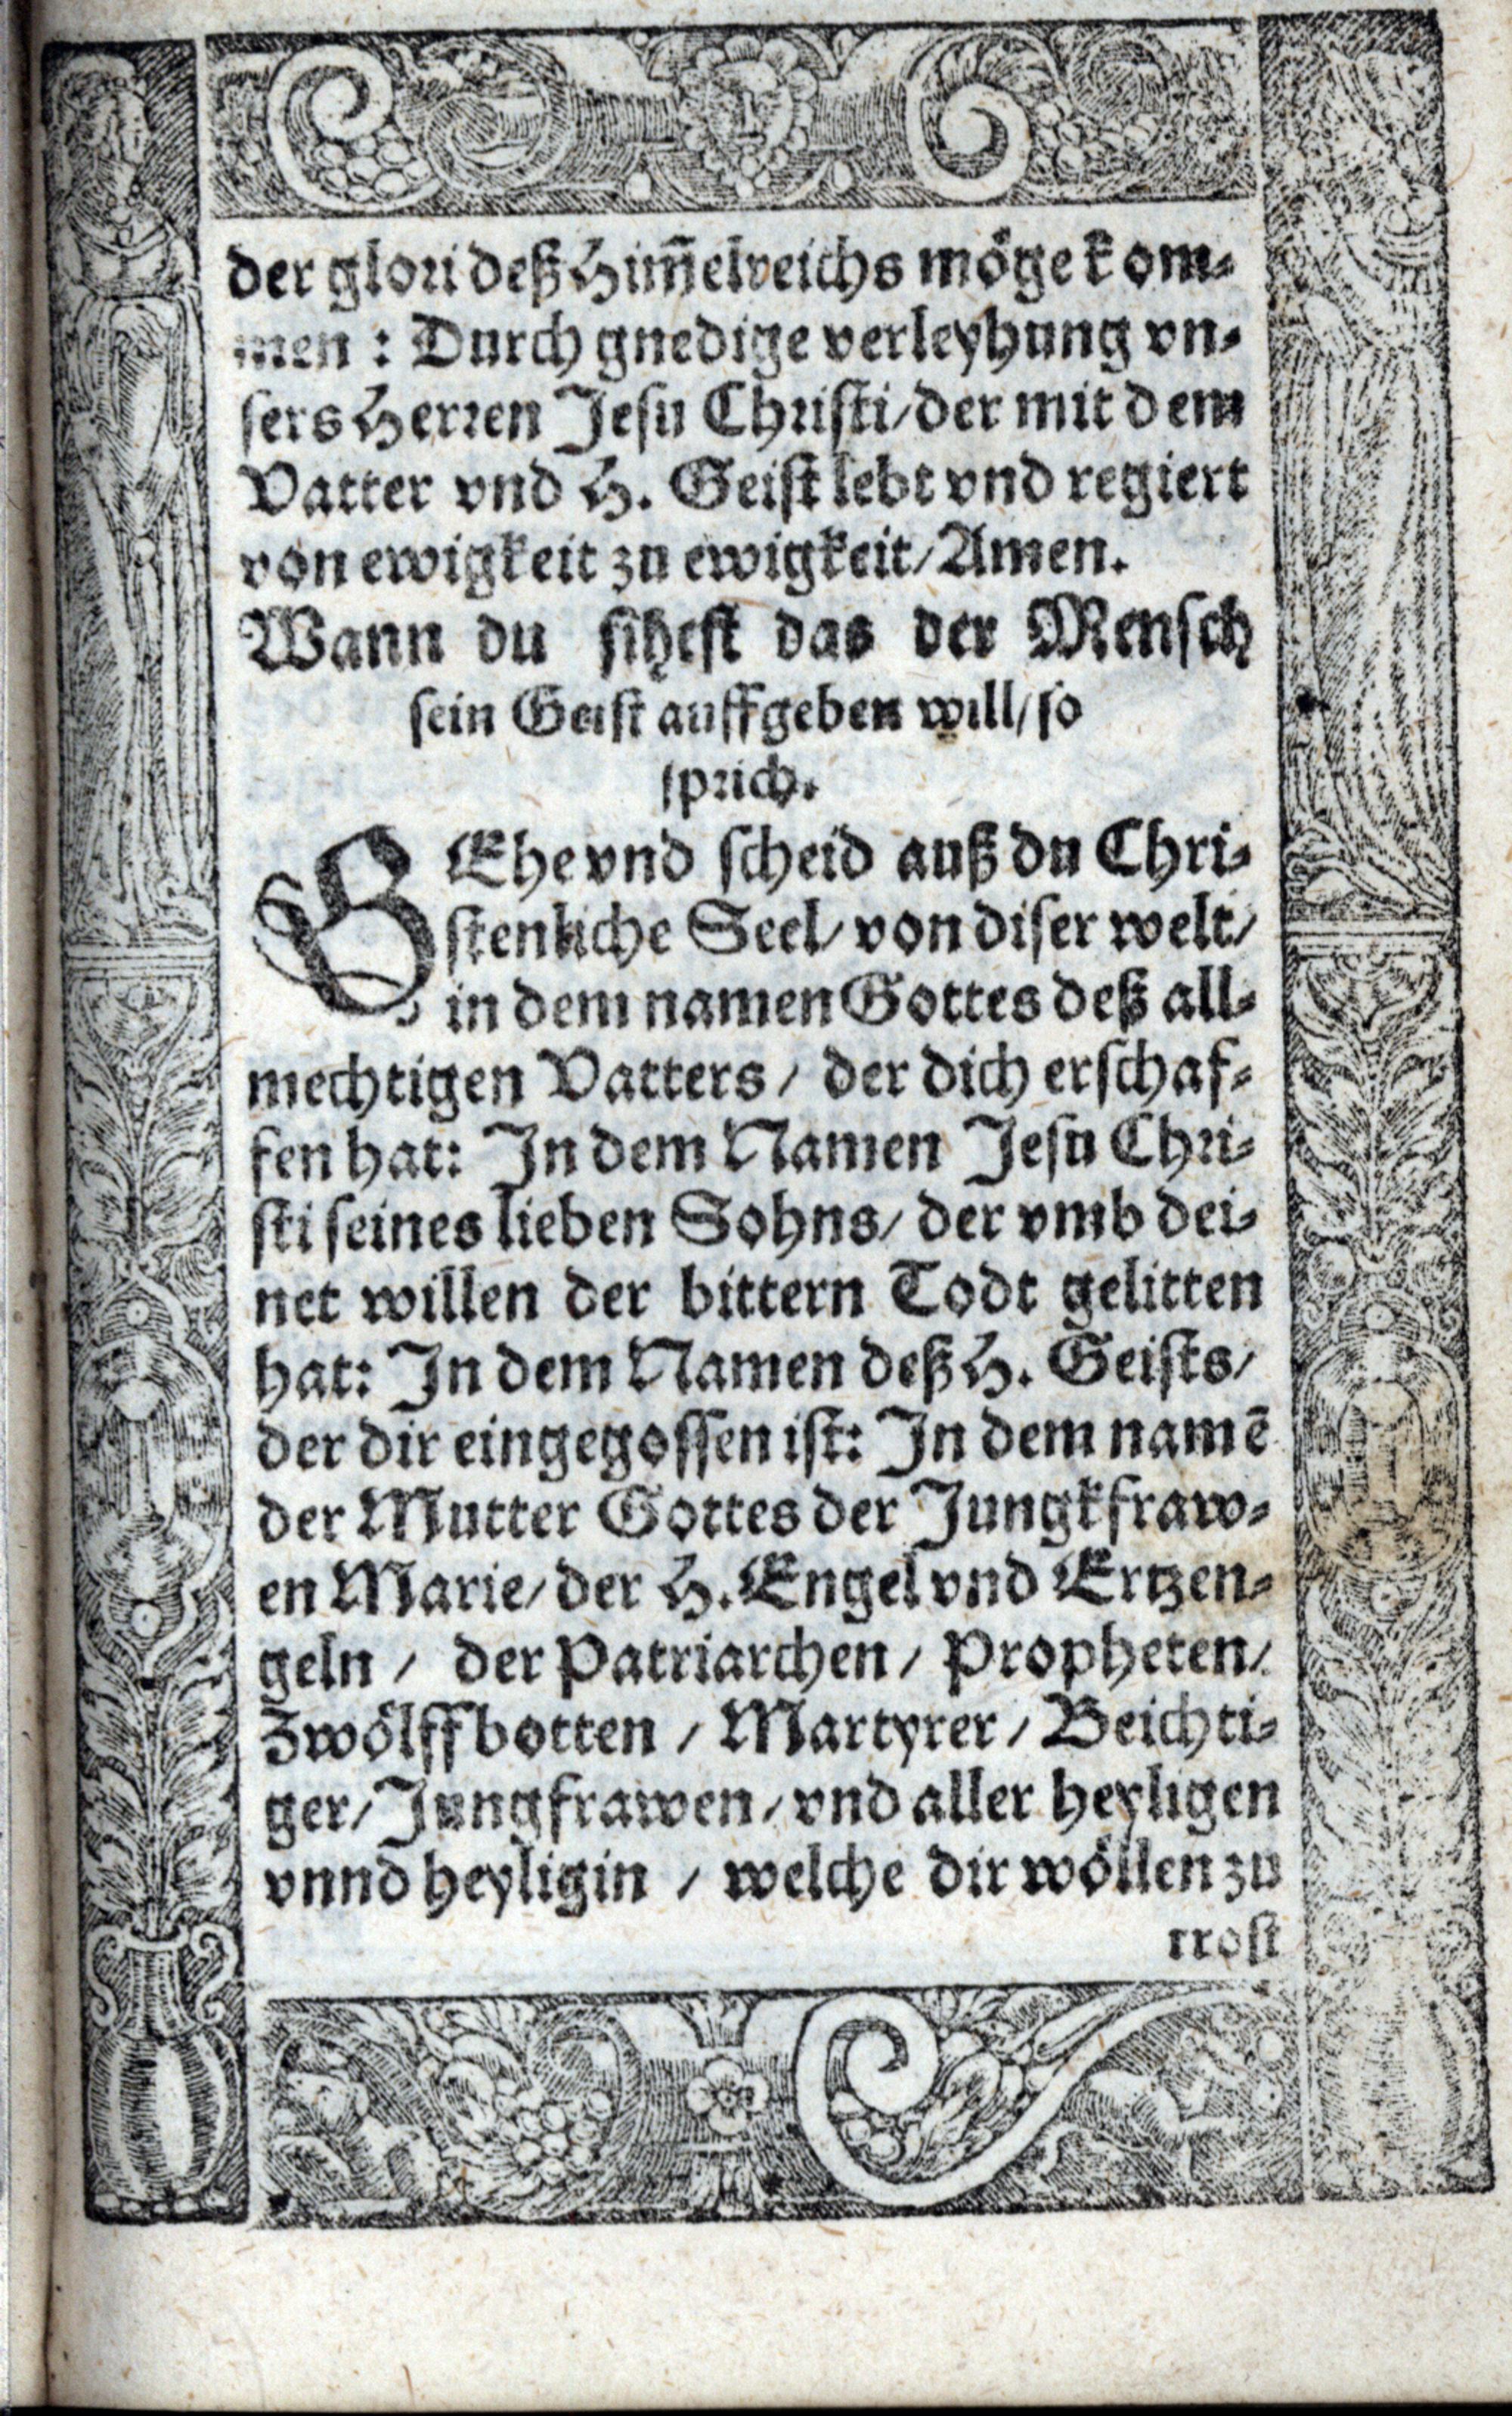 der glori deß Him̃elreichs möge kom⸗
men : Durch gnedige verleyhung vn⸗
sers Herren Jesu Christi/der mit dem
Vatter vnd H. Geist lebt vnd regiert
von ewigkeit zu ewigkeit/Amen.
Wann du sihest das der Mensch
sein Geist auffgeben will/so
sprich.
GEhe vnd scheid auß du Chri⸗
stenliche Seel/von diser welt/
in dem namen Gottes deß all⸗
mechtigen Vatters / der dich erschaf⸗
fen hat: In dem Namen Jesu Chri⸗
sti seines lieben Sohns/ der vmb dei⸗
net willen der bittern Todt gelitten
hat: In dem Namen deß H. Geists/
der dir eingegossen ist: In dem namē
der Mutter Gottes der Jungkfraw⸗
en Marie/der H. Engel vnd Ertzen⸗
geln / der Patriarchen / Propheten/
Zwölffbotten / Martyrer / Beichti⸗
ger/Jungfrawen/vnd aller heyligen
vnnd heyligin / welche dir wöllen zu
trost